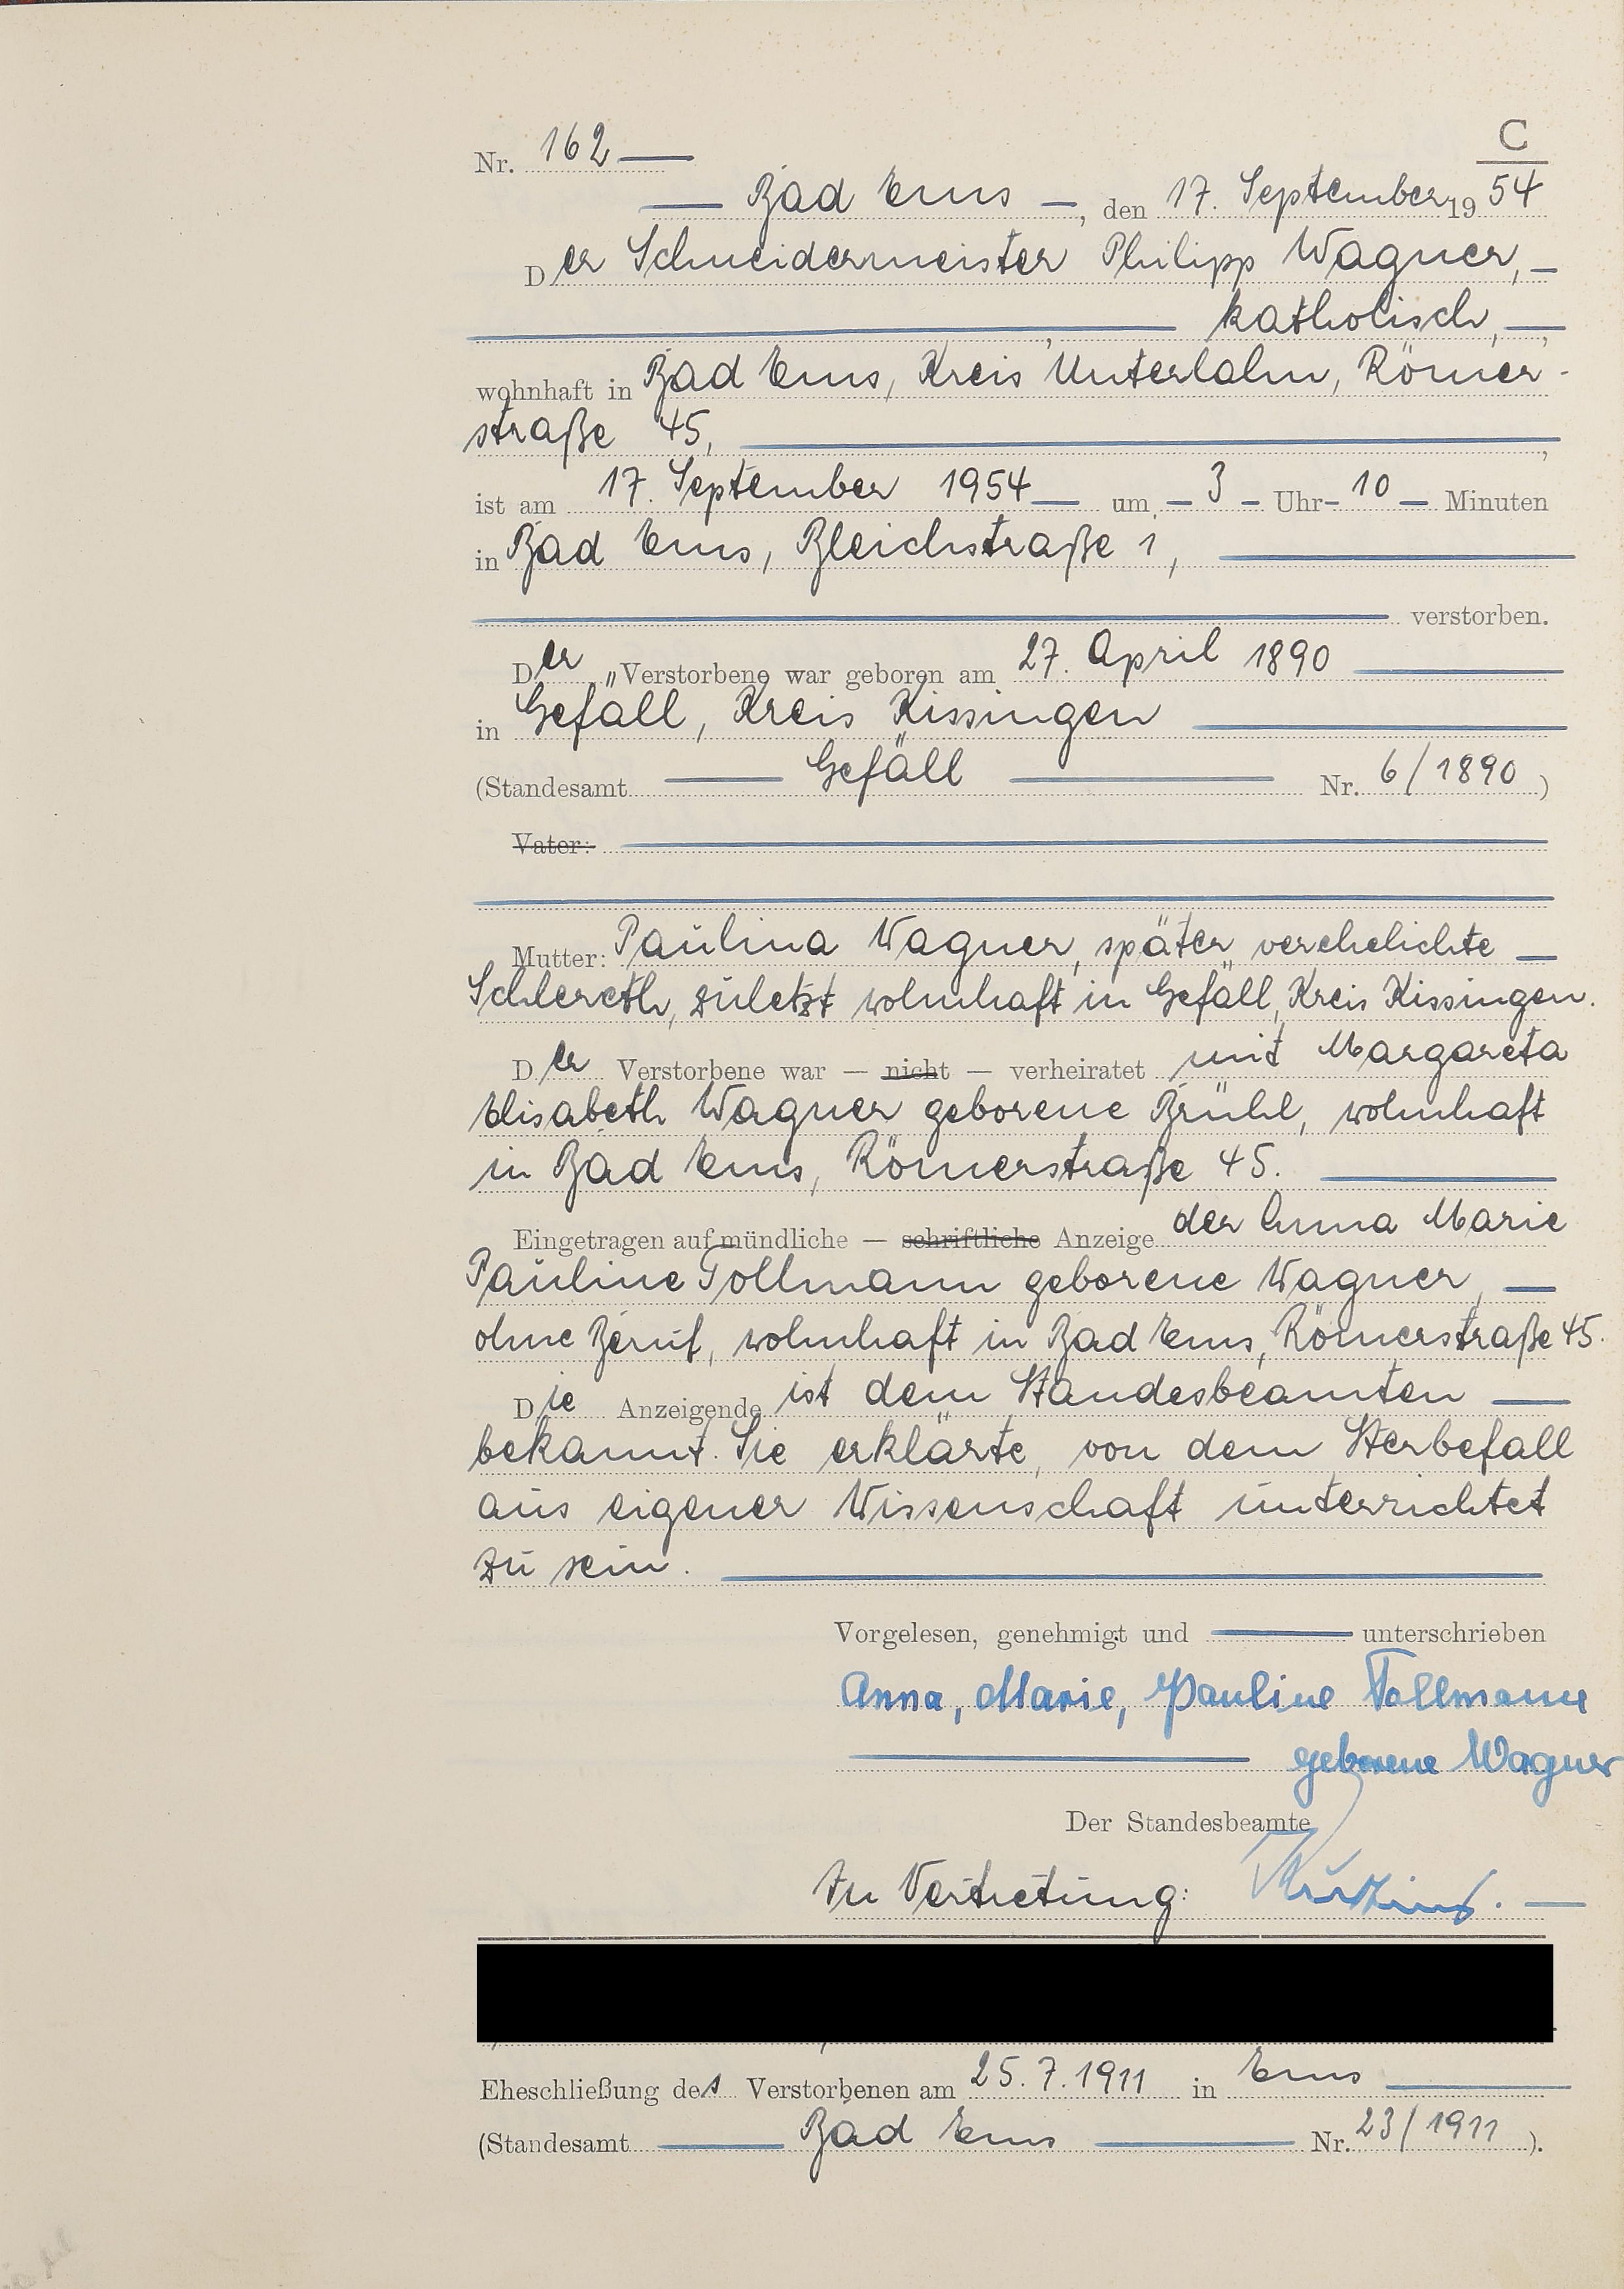 C
Nr. 162
Bad Ems, den 17. September 1954
Der Schneidermeister Philipp Wagner,
katholisch,
wohnhaft in Bad Ems, Kreis Unterlahn, Römer-
straße 45,
ist am 17. September 1954 um 3 Uhr 10 Minuten
in Bad Ems, Bleichstraße 1,
verstorben.
Der Verstorbene war geboren am 27. April 1890
in Gefäll, Kreis Kissingen
(Standesamt Gefäll Nr. 6/1890)
Vater:
Mutter: Paulina Wagner, später verehelichte
Schlereth, zuletzt wohnhaft in Gefäll, Kreis Kissingen.
Der Verstorbene war — nicht — verheiratet mit Margareta
Elisabeth Wagner geborene Brühl, wohnhaft
in Bad Ems, Römerstraße 45.
Eingetragen auf mündliche — schriftliche Anzeige der Anna Marie
Pauline Tollmann geborene Wagner,
ohne Beruf, wohnhaft in Bad Ems, Römerstraße 45.
Die Anzeigende ist dem Standesbeamten
bekannt. Sie erklärte, von dem Sterbefall
aus eigener Wissenschaft unterrichtet
zu sein.
Vorgelesen, genehmigt und unterschrieben
Anna, Marie, Pauline Tollmann
geborene Wagner
Der Standesbeamte
In Vertretung:
Eheschließung des Verstorbenen am 25.7.1911 in Ems
(Standesamt Bad Ems Nr. 23/1911).